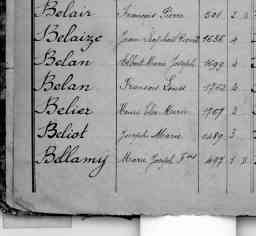 Belair François Pierre 501 2
Belaize Jean 1636 4
Belan Albert Marie Joseph 1699 4
Belan François Louis 1702 4
Belier Marie 1707 2
Beliot Joseph Marie 1489 3
Bellamy Marie Joseph Fois 497 1